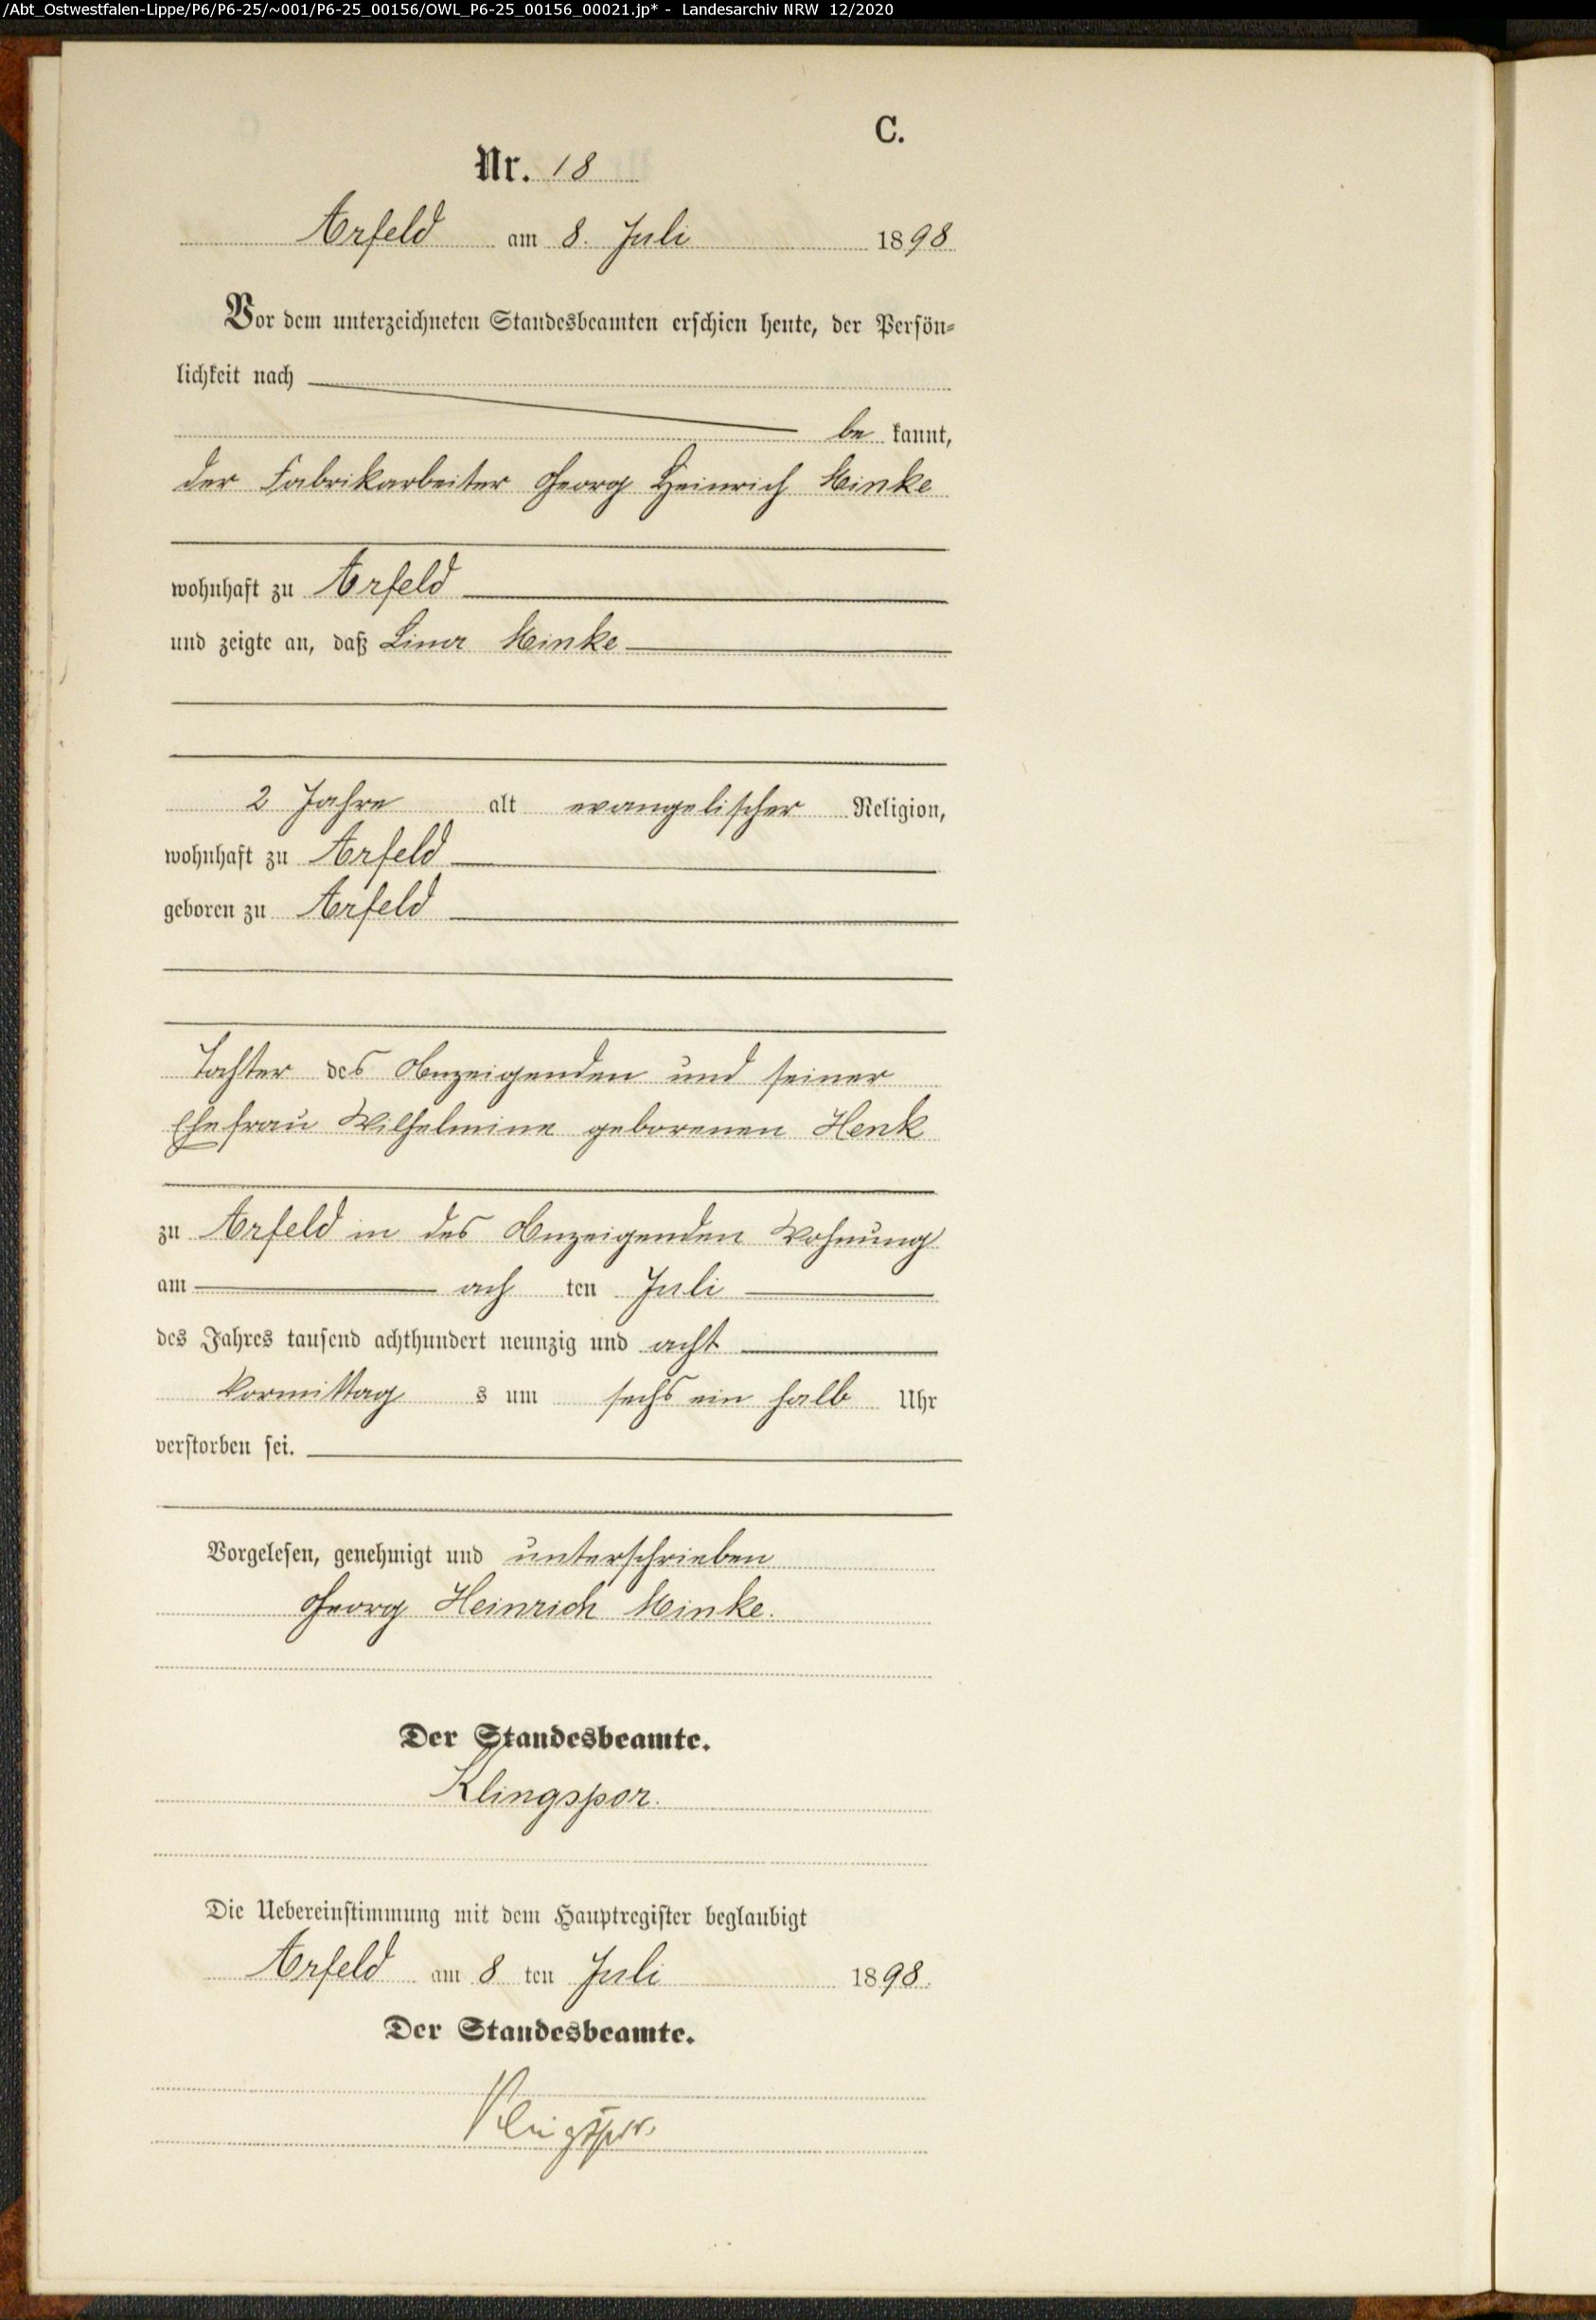 /Abt_Ostwestfalen-Lippe/P6/P6-25/~001/P6-25_00156/OWL_P6-25_00156_00021.jp* - Landesarchiv NRW 12/2020
C.
Nr. 18
Arfeld am 8. Juli 1898
Vor dem unterzeichneten Standesbeamten erschien heute, der Persön-
lichkeit nach
be kannt,
der Fabrikarbeiter Georg Heinrich Minke
wohnhaft zu Arfeld
und zeigte an, daß Lina Minke
2 Jahre alt evangelischer Religion,
wohnhaft zu Arfeld
geboren zu Arfeld
Tochter des Anzeigenden und seiner
Ehefrau Wilhelmine geborenen Henk
zu Arfeld in des Anzeigenden Wohnung
am ach ten Juli
des Jahres tausend achthundert neunzig und acht
Vormittag s um sechs ein halb Uhr
verstorben sei.
Vorgelesen, genehmigt und unterschrieben
Georg Heinrich Minke.
Der Standesbeamte.
Klingspor.
Die Uebereinstimmung mit dem Hauptregister beglaubigt
Arfeld am 8 ten Juli 1898.
Der Standesbeamte.
Klingspor.